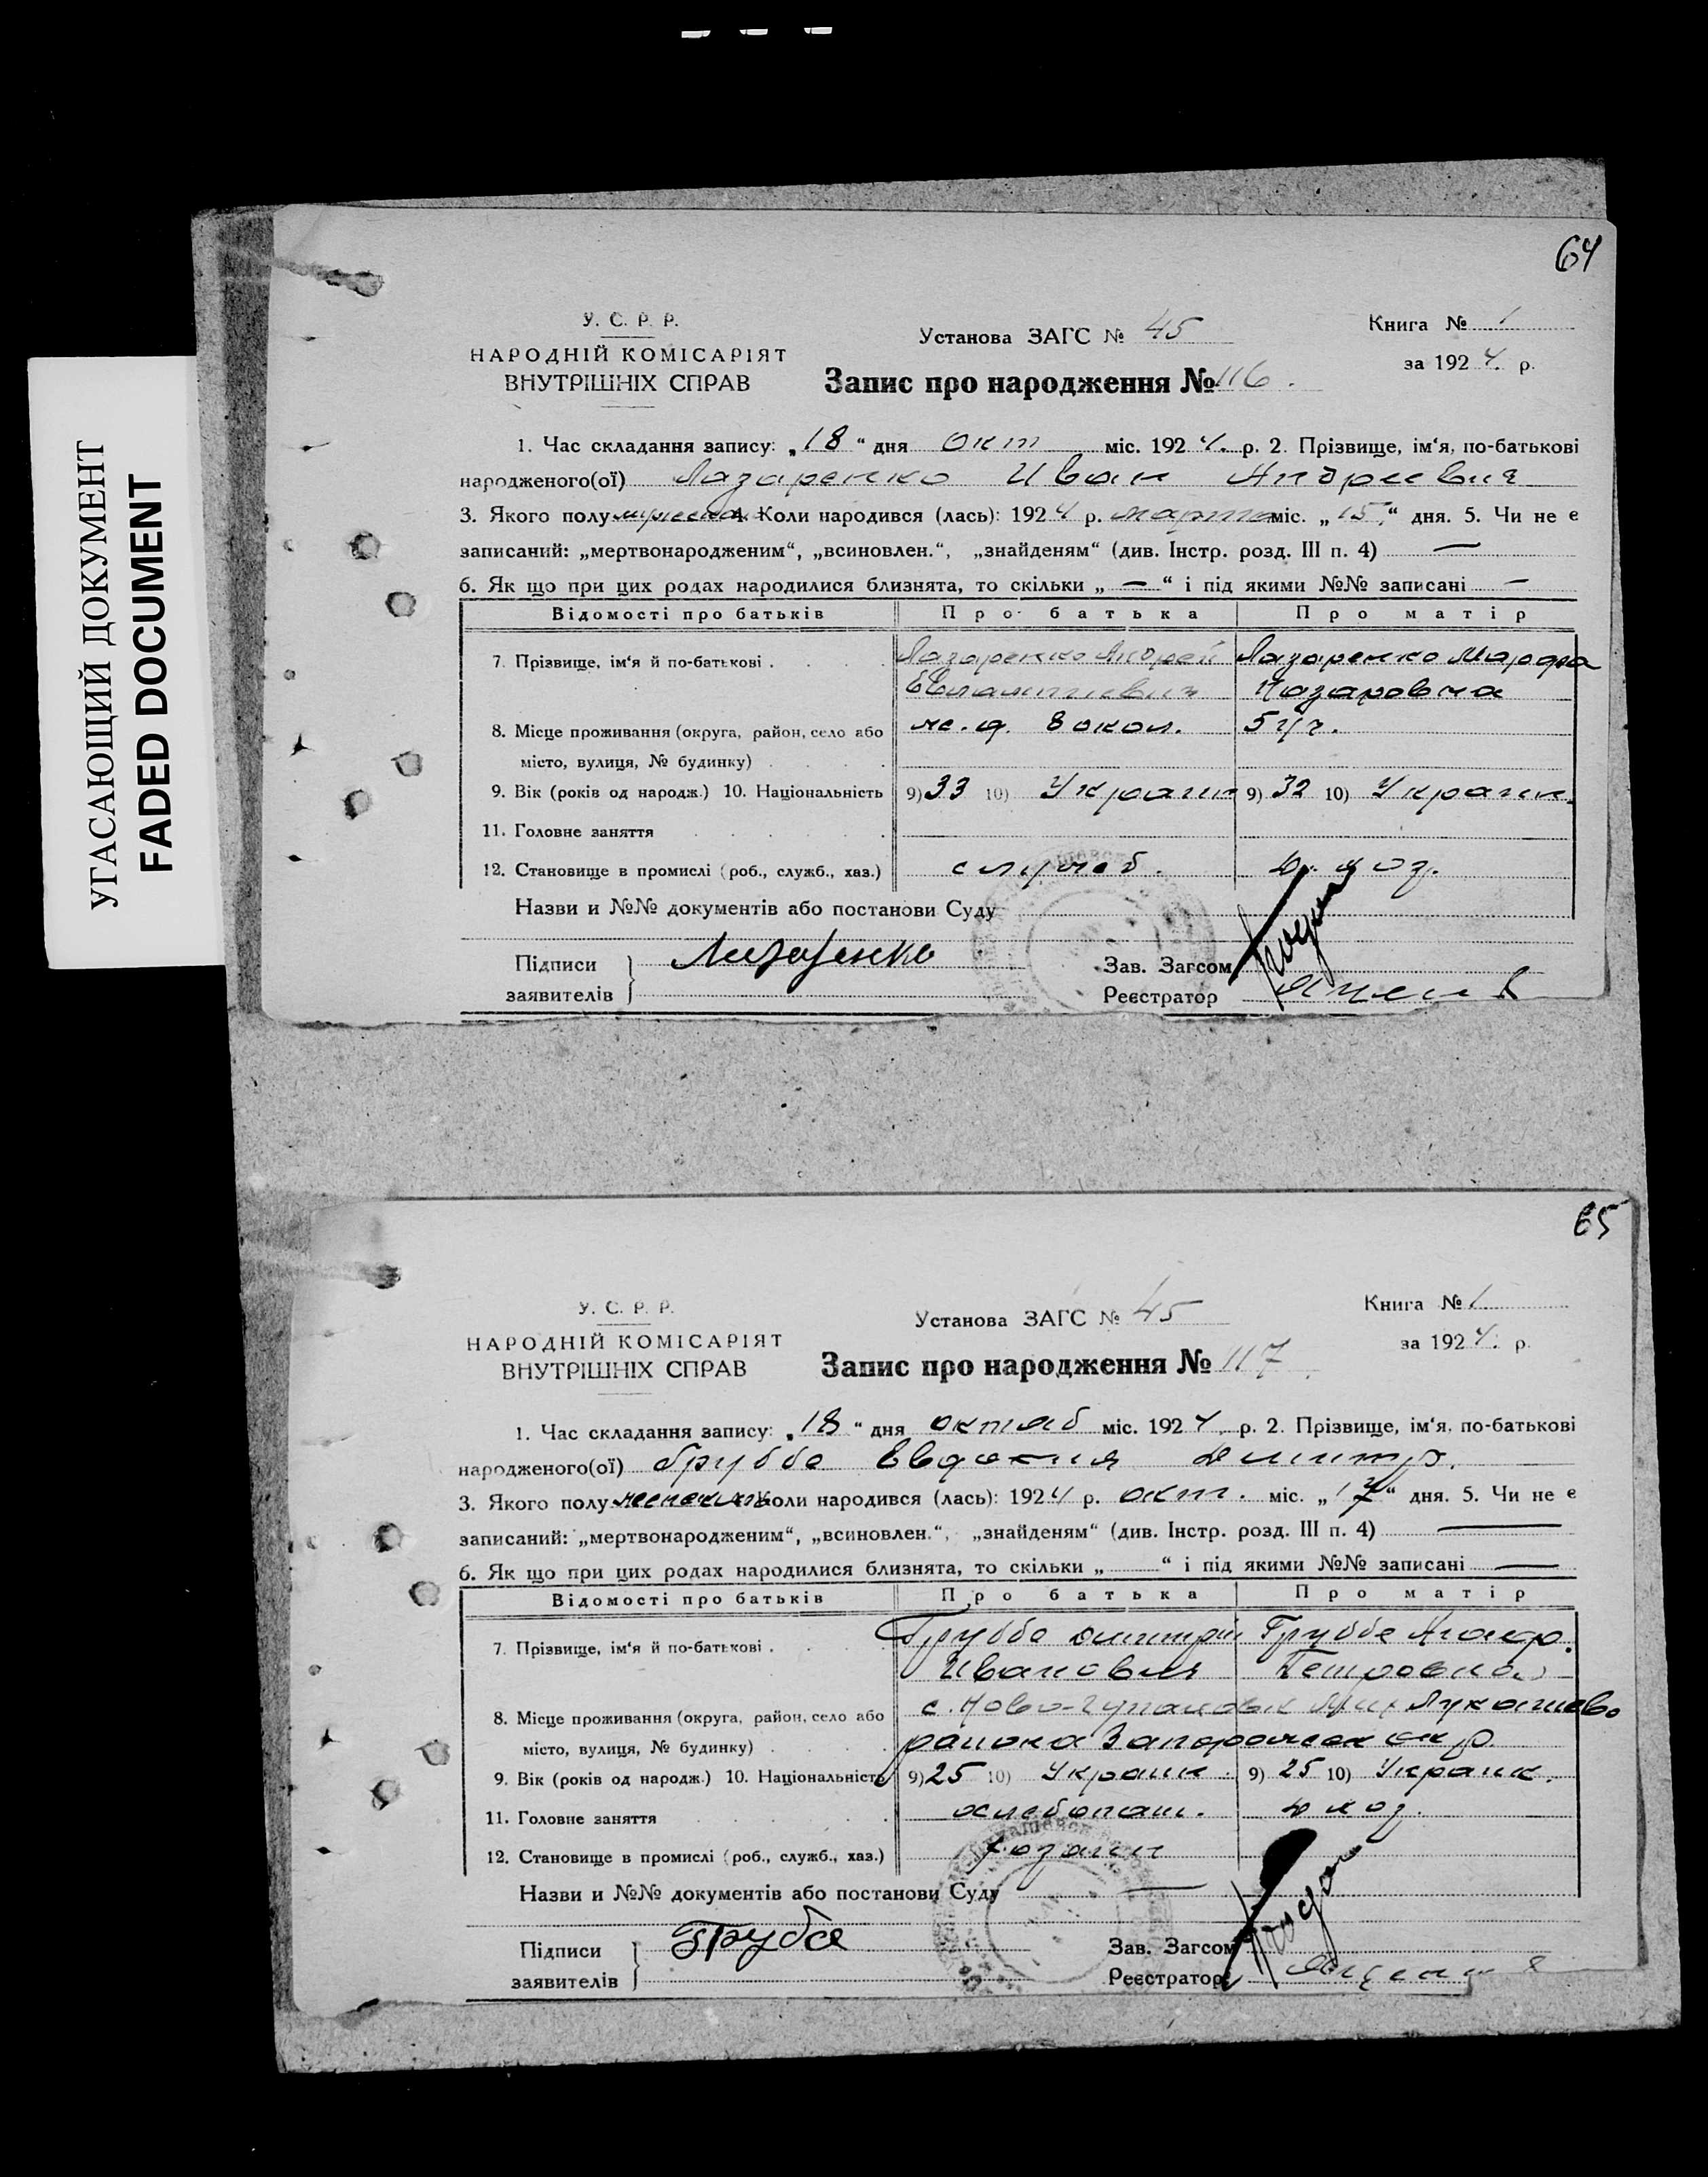 УГАСАЮЩИЙ ДОКУМЕНТ
FADED DOCUMENT
64
У. С. Р. Р.
НАРОДНІЙ КОМІСАРІЯТ
ВНУТРІШНІХ СПРАВ
Установа ЗАГС № 45
Запис про народження № 116.
Книга № 1
за 1924. р.
1. Час складання запису: „18“ дня окт міс. 1924. р. 2. Прізвище, ім‘я, по-батькові
народженого(ої) Лазаренко Иван Андреевич
3. Якого полу 4. Коли народився (лась): 1924 р. марта міс. „15“ дня. 5. Чи не є
записаний: „мертвонародженим“, „всиновлен.“, „знайденям“ (див. Інстр. розд. III п. 4) —
6. Як що при цих родах народилися близнята, то скільки „—“ і під якими №№ записані —
Відомості про батьків Про батька Про матір
7. Прізвище, ім‘я й по-батькові . Лазаренко Андрей Лазаренко Марфа
Назаровна
8. Місце проживання (округа, район, село або ж.д. 8 окол. 5 уч.
місто, вулиця, № будинку)
9. Вік (років од народж.) 10. Національність 9) 33 10) Украин 9) 32 10) Украин.
11. Головне заняття
12. Становище в промислі (роб., служб., хаз.) служб. д. хоз.
Назви и №№ документів або постанови Суду
Підписи
заявителів
Лазаренко
Зав. Загсом
Реєстратор
65
У. С. Р. Р.
НАРОДНІЙ КОМІСАРІЯТ
ВНУТРІШНІХ СПРАВ
Установа ЗАГС № 45
Запис про народження № 117
Книга № 1
за 1924. р.
1. Час складання запису: „18“ дня октяб міс. 1924. р. 2. Прізвище, ім‘я, по-батькові
народженого(ої) Грубба Евдокия Дмитр.
3. Якого полу Коли народився (лась): 1924 р. окт. міс. „17“ дня. 5. Чи не є
записаний: „мертвонародженим“, „всиновлен.“, „знайденям“ (див. Інстр. розд. III п. 4) —
6. Як що при цих родах народилися близнята, то скільки „ “ і під якими №№ записані —
Відомості про батьків Про батька Про матір
7. Прізвище, ім‘я й по-батькові . Грубба Дмитрий Грубба Агаф.
Иванович Петровна
8. Місце проживання (округа, район, село або с. Лукашево
місто, вулиця, № будинку) района Запорожск окр.
9. Вік (років од народж.) 10. Національність 9) 25 10) Украин. 9) 25 10) Украин.
11. Головне заняття хлебопаш. д хоз.
12. Становище в промислі (роб., служб., хаз.) хозаин
Назви и №№ документів або постанови Суду —
Підписи
заявителів
Грубба
Зав. Загсом
Реєстратор